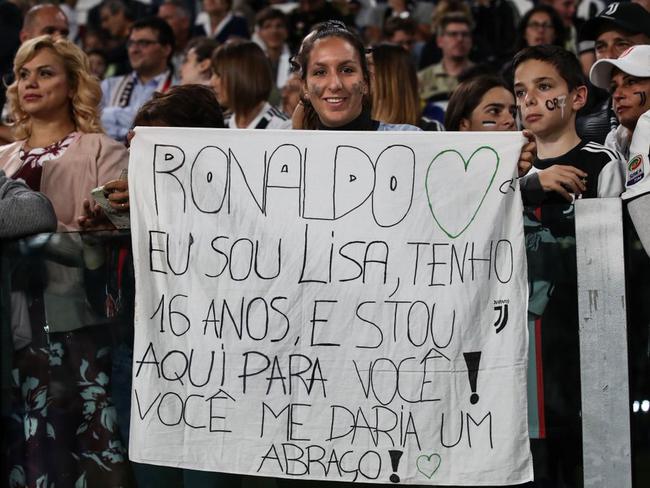 RONALDO ♡
EU SOU LISA, TENHO
16 ANOS, E ESTOU
JUVENTUS
AQUI PARA VOCÊ!
VOCÊ ME DARIA UM
ABRAÇO! ♡